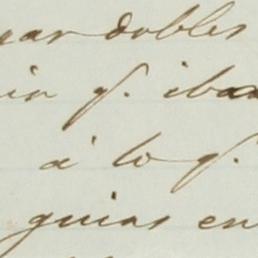 ar dobles
in q.e iban
á lo q.e
guias en